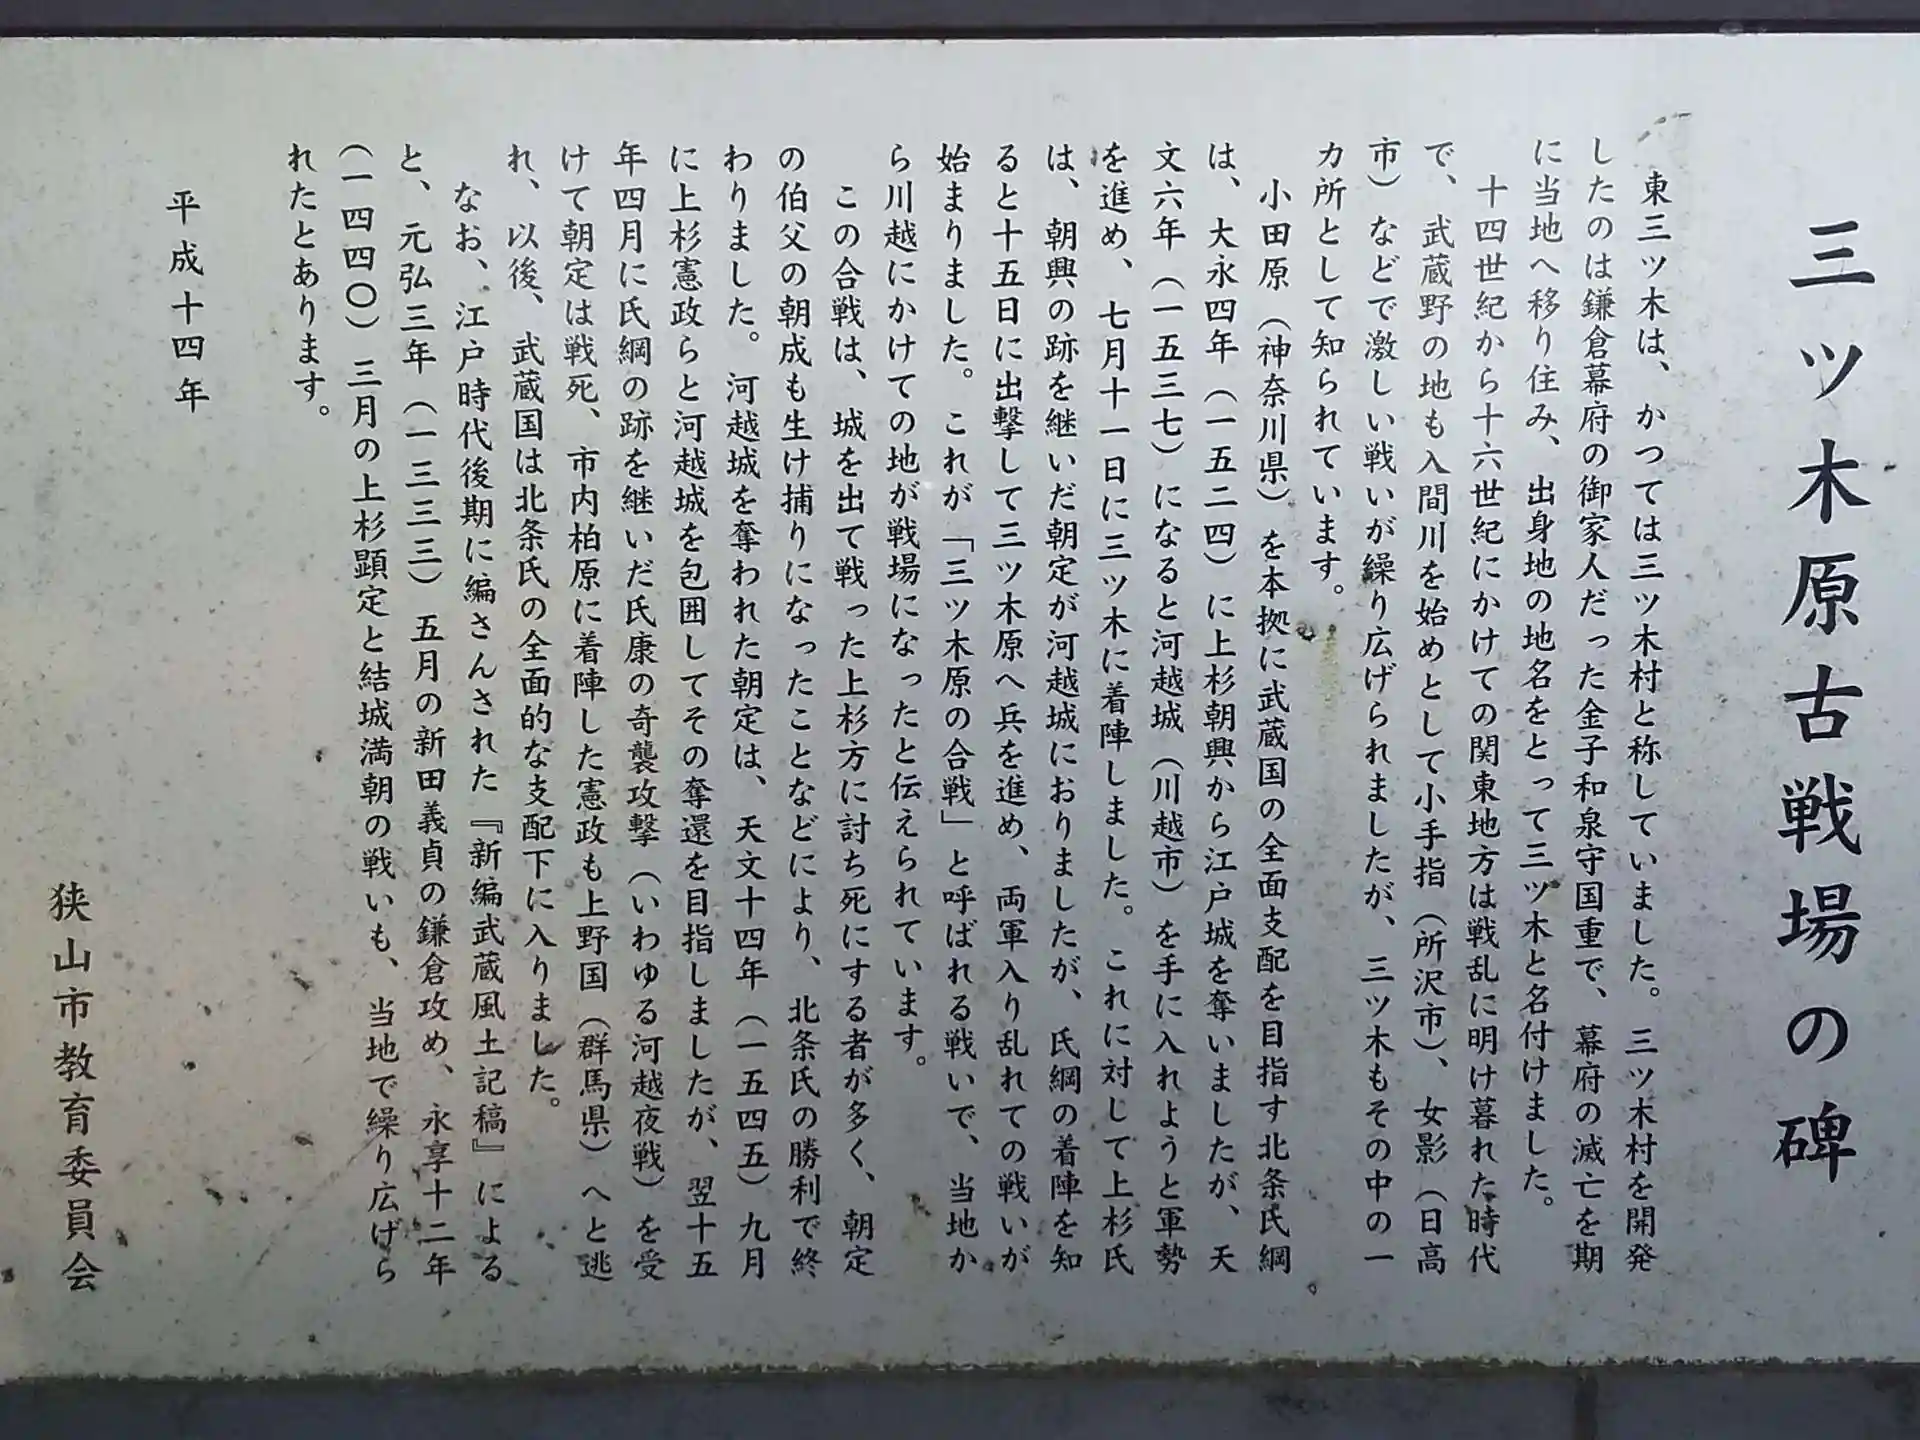 三ツ木原古戦場の碑
東三ツ木は、かつては三ツ木村と称していました。三ツ木村を開発
したのは鎌倉幕府の御家人だった金子和泉守国重で、幕府の滅亡を期
に当地へ移り住み、出身地の地名をとって三ツ木と名付けました。
十四世紀から十六世紀にかけての関東地方は戦乱に明け暮れた時代
で、武蔵野の地も入間川を始めとして小手指（所沢市）、女影（日高
市）などで激しい戦いが繰り広げられましたが、三ツ木もその中の一
カ所として知られています。
小田原（神奈川県）を本拠に武蔵国の全面支配を目指す北条氏綱
は、大永四年（一五二四）に上杉朝興から江戸城を奪いましたが、天
文六年（一五三七）になると河越城（川越市）を手に入れようと軍勢
を進め、七月十一日に三ツ木に着陣しました。これに対して上杉氏
は、朝興の跡を継いだ朝定が河越城におりましたが、氏綱の着陣を知
ると十五日に出撃して三ツ木原へ兵を進め、両軍入り乱れての戦いが
始まりました。これが「三ツ木原の合戦」と呼ばれる戦いで、当地か
ら川越にかけての地が戦場になったと伝えられています。
この合戦は、城を出て戦った上杉方に討ち死にする者が多く、朝定
の伯父の朝成も生け捕りになったことなどにより、北条氏の勝利で終
わりました。河越城を奪われた朝定は、天文十四年（一五四五）九月
に上杉憲政らと河越城を包囲してその奪還を目指しましたが、翌十五
年四月に氏綱の跡を継いだ氏康の奇襲攻撃（いわゆる河越夜戦）を受
けて朝定は戦死、市内柏原に着陣した憲政も上野国（群馬県）へと逃
れ、以後、武蔵国は北条氏の全面的な支配下に入りました。
なお、江戸時代後期に編さんされた『新編武蔵風土記稿』による
と、元弘三年（一三三三）五月の新田義貞の鎌倉攻め、永享十二年
（一四四〇）三月の上杉顕定と結城満朝の戦いも、当地で繰り広げら
れたとあります。
平成十四年
狭山市教育委員会